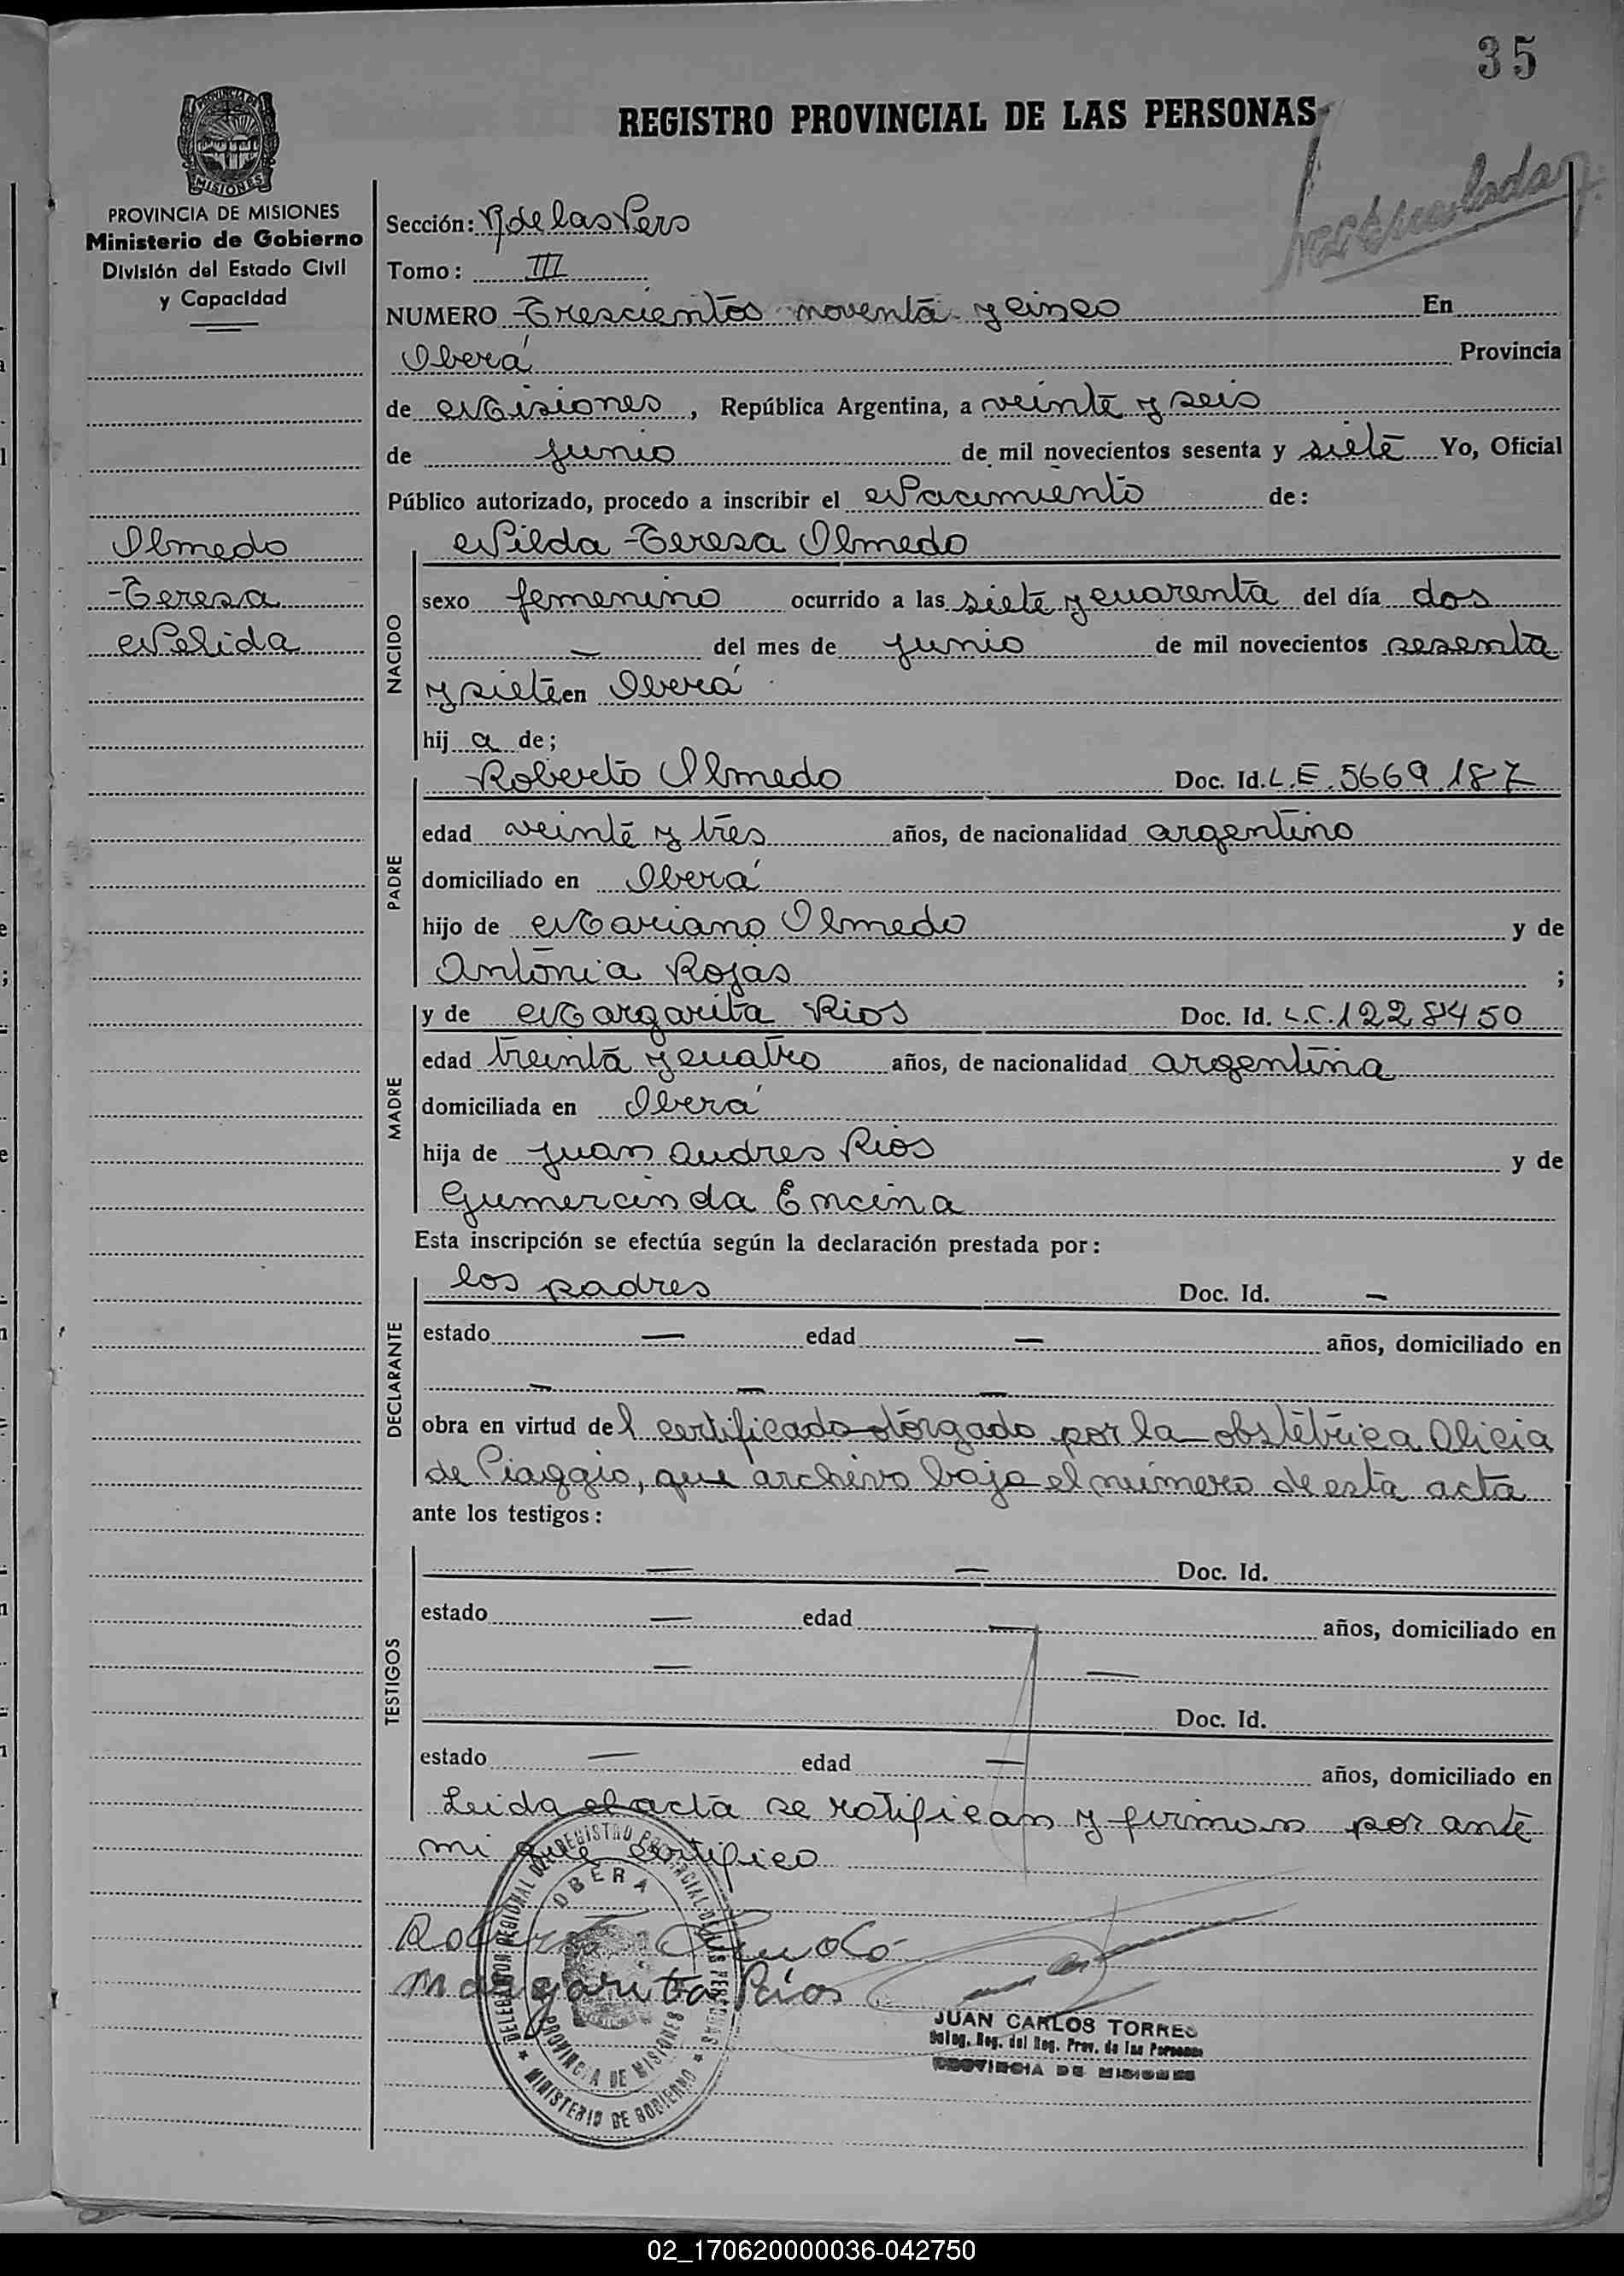 35
REGISTRO PROVINCIAL DE LAS PERSONAS
PROVINCIA DE
MISIONES
PROVINCIA DE MISIONES
Ministerio de Gobierno
División del Estado Civil
y Capacidad
Olmedo
Teresa
Nelida
Sección: R de las Pers
Tomo: III
NUMERO Trescientos noventa y cinco En
Oberá Provincia
de Misiones, República Argentina, a veinte y seis
de junio de mil novecientos sesenta y siete Yo, Oficial
Público autorizado, procedo a inscribir el Nacimiento de:
NACIDO
Nilda Teresa Olmedo
sexo femenino ocurrido a las siete y cuarenta del día dos
— del mes de junio de mil novecientos sesenta
y siete en Oberá
hij a de;
PADRE
Roberto Olmedo Doc. Id. L.E. 5669.187
edad veinte y tres años, de nacionalidad argentino
domiciliado en Oberá
hijo de Mariano Olmedo y de
Antonia Rojas ;
MADRE
y de Margarita Rios Doc. Id. L.C. 1228450
edad treinta y cuatro años, de nacionalidad argentina
domiciliada en Oberá
hija de Juan Andres Rios y de
Gumercinda Encina
Esta inscripción se efectúa según la declaración prestada por:
DECLARANTE
los padres Doc. Id. —
estado — edad — años, domiciliado en
— — —
obra en virtud del certificado otorgado por la obstétrica Alicia
de Piaggio, que archivo bajo el número de esta acta
ante los testigos:
TESTIGOS
— — Doc. Id.
estado — edad — años, domiciliado en
— —
Doc. Id.
estado — edad — años, domiciliado en
Leida el acta se ratifican y firman por ante
mi que certifico
DELEGACION REGIONAL DEL REGISTRO PROVINCIAL DE LAS PERSONAS
OBERA
PROVINCIA DE MISIONES
★ MINISTERIO DE GOBIERNO ★
Roberto Olmedo
Margarita Rios
JUAN CARLOS TORRES
Deleg. Reg. del Reg. Prov. de las Personas
PROVINCIA DE MISIONES
02_170620000036-042750